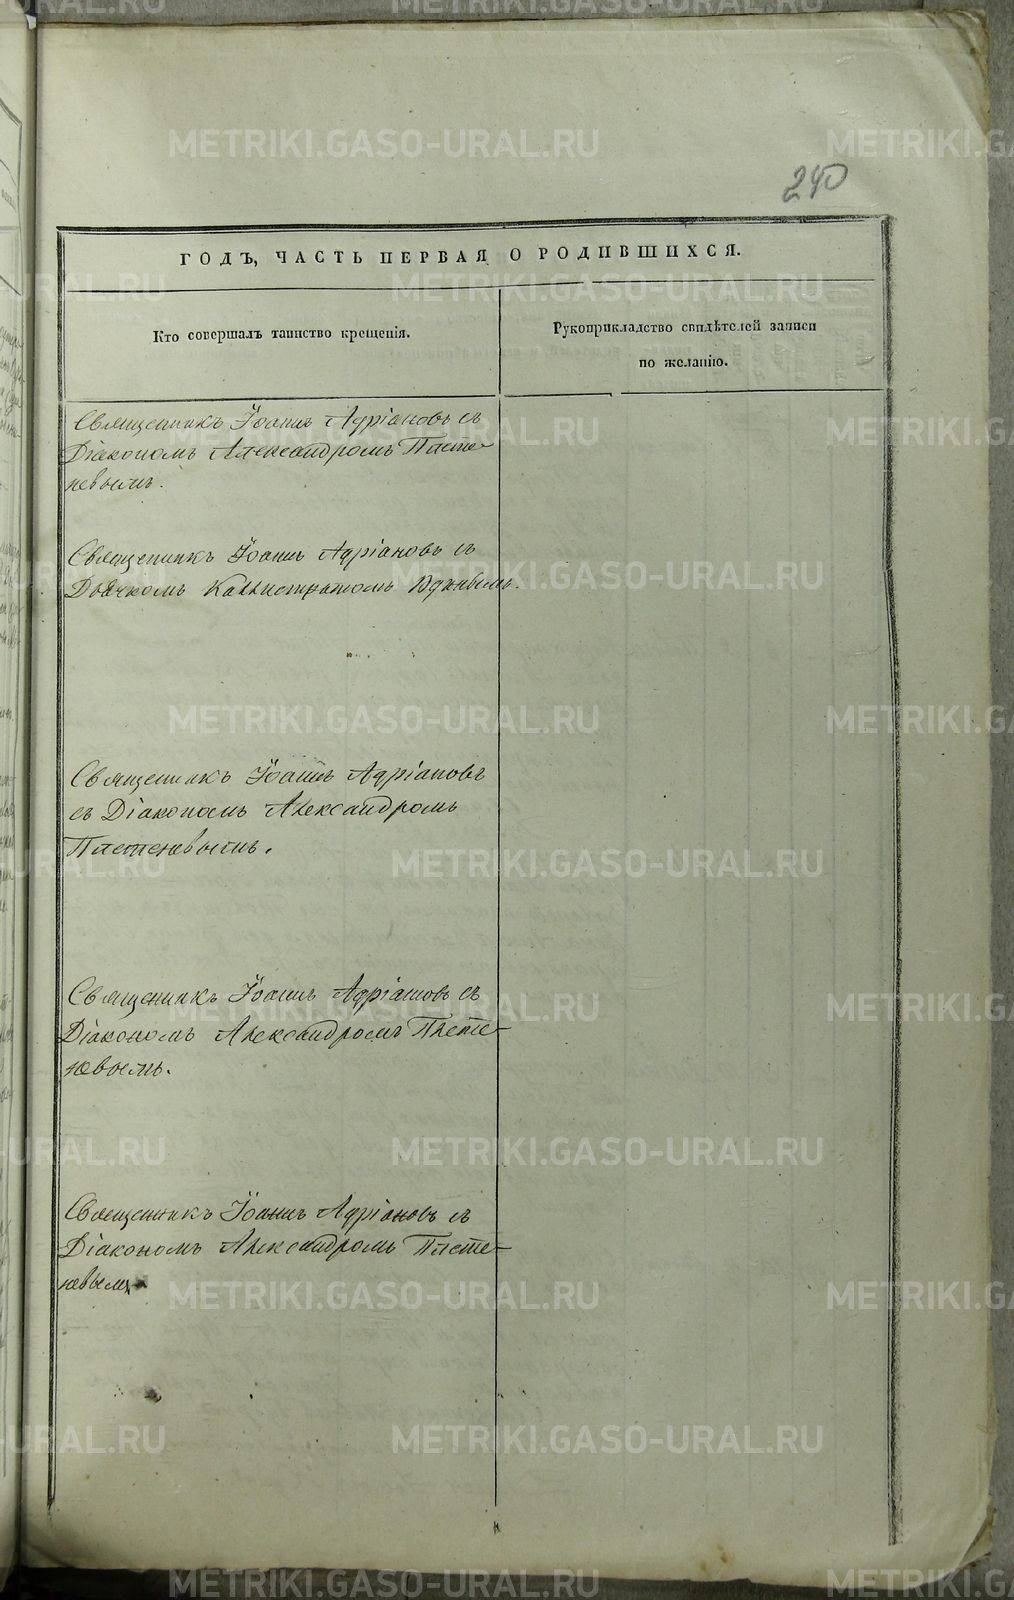 240
ГОДЪ, ЧАСТЬ ПЕРВАЯ О РОДИВШИХСЯ.
Кто совершалъ таинство крещенія.
Рукоприкладство свидѣтелей записи
по желанію.
Священникъ Іоаннъ Адріановъ съ
Діакономъ Александромъ Плете-
невымъ.
Священникъ Іоаннъ Адріановъ съ
Дьячкомъ Каллистратомъ Юдинымъ.
Священникъ Іоаннъ Адріановъ
съ Діакономъ Александромъ
Плетеневымъ.
Священникъ Іоаннъ Адріановъ съ
Діакономъ Александромъ Плете-
невымъ.
Священникъ Іоаннъ Адріановъ съ
Діакономъ Александромъ Плете-
невымъ
METRIKI.GASO-URAL.RU